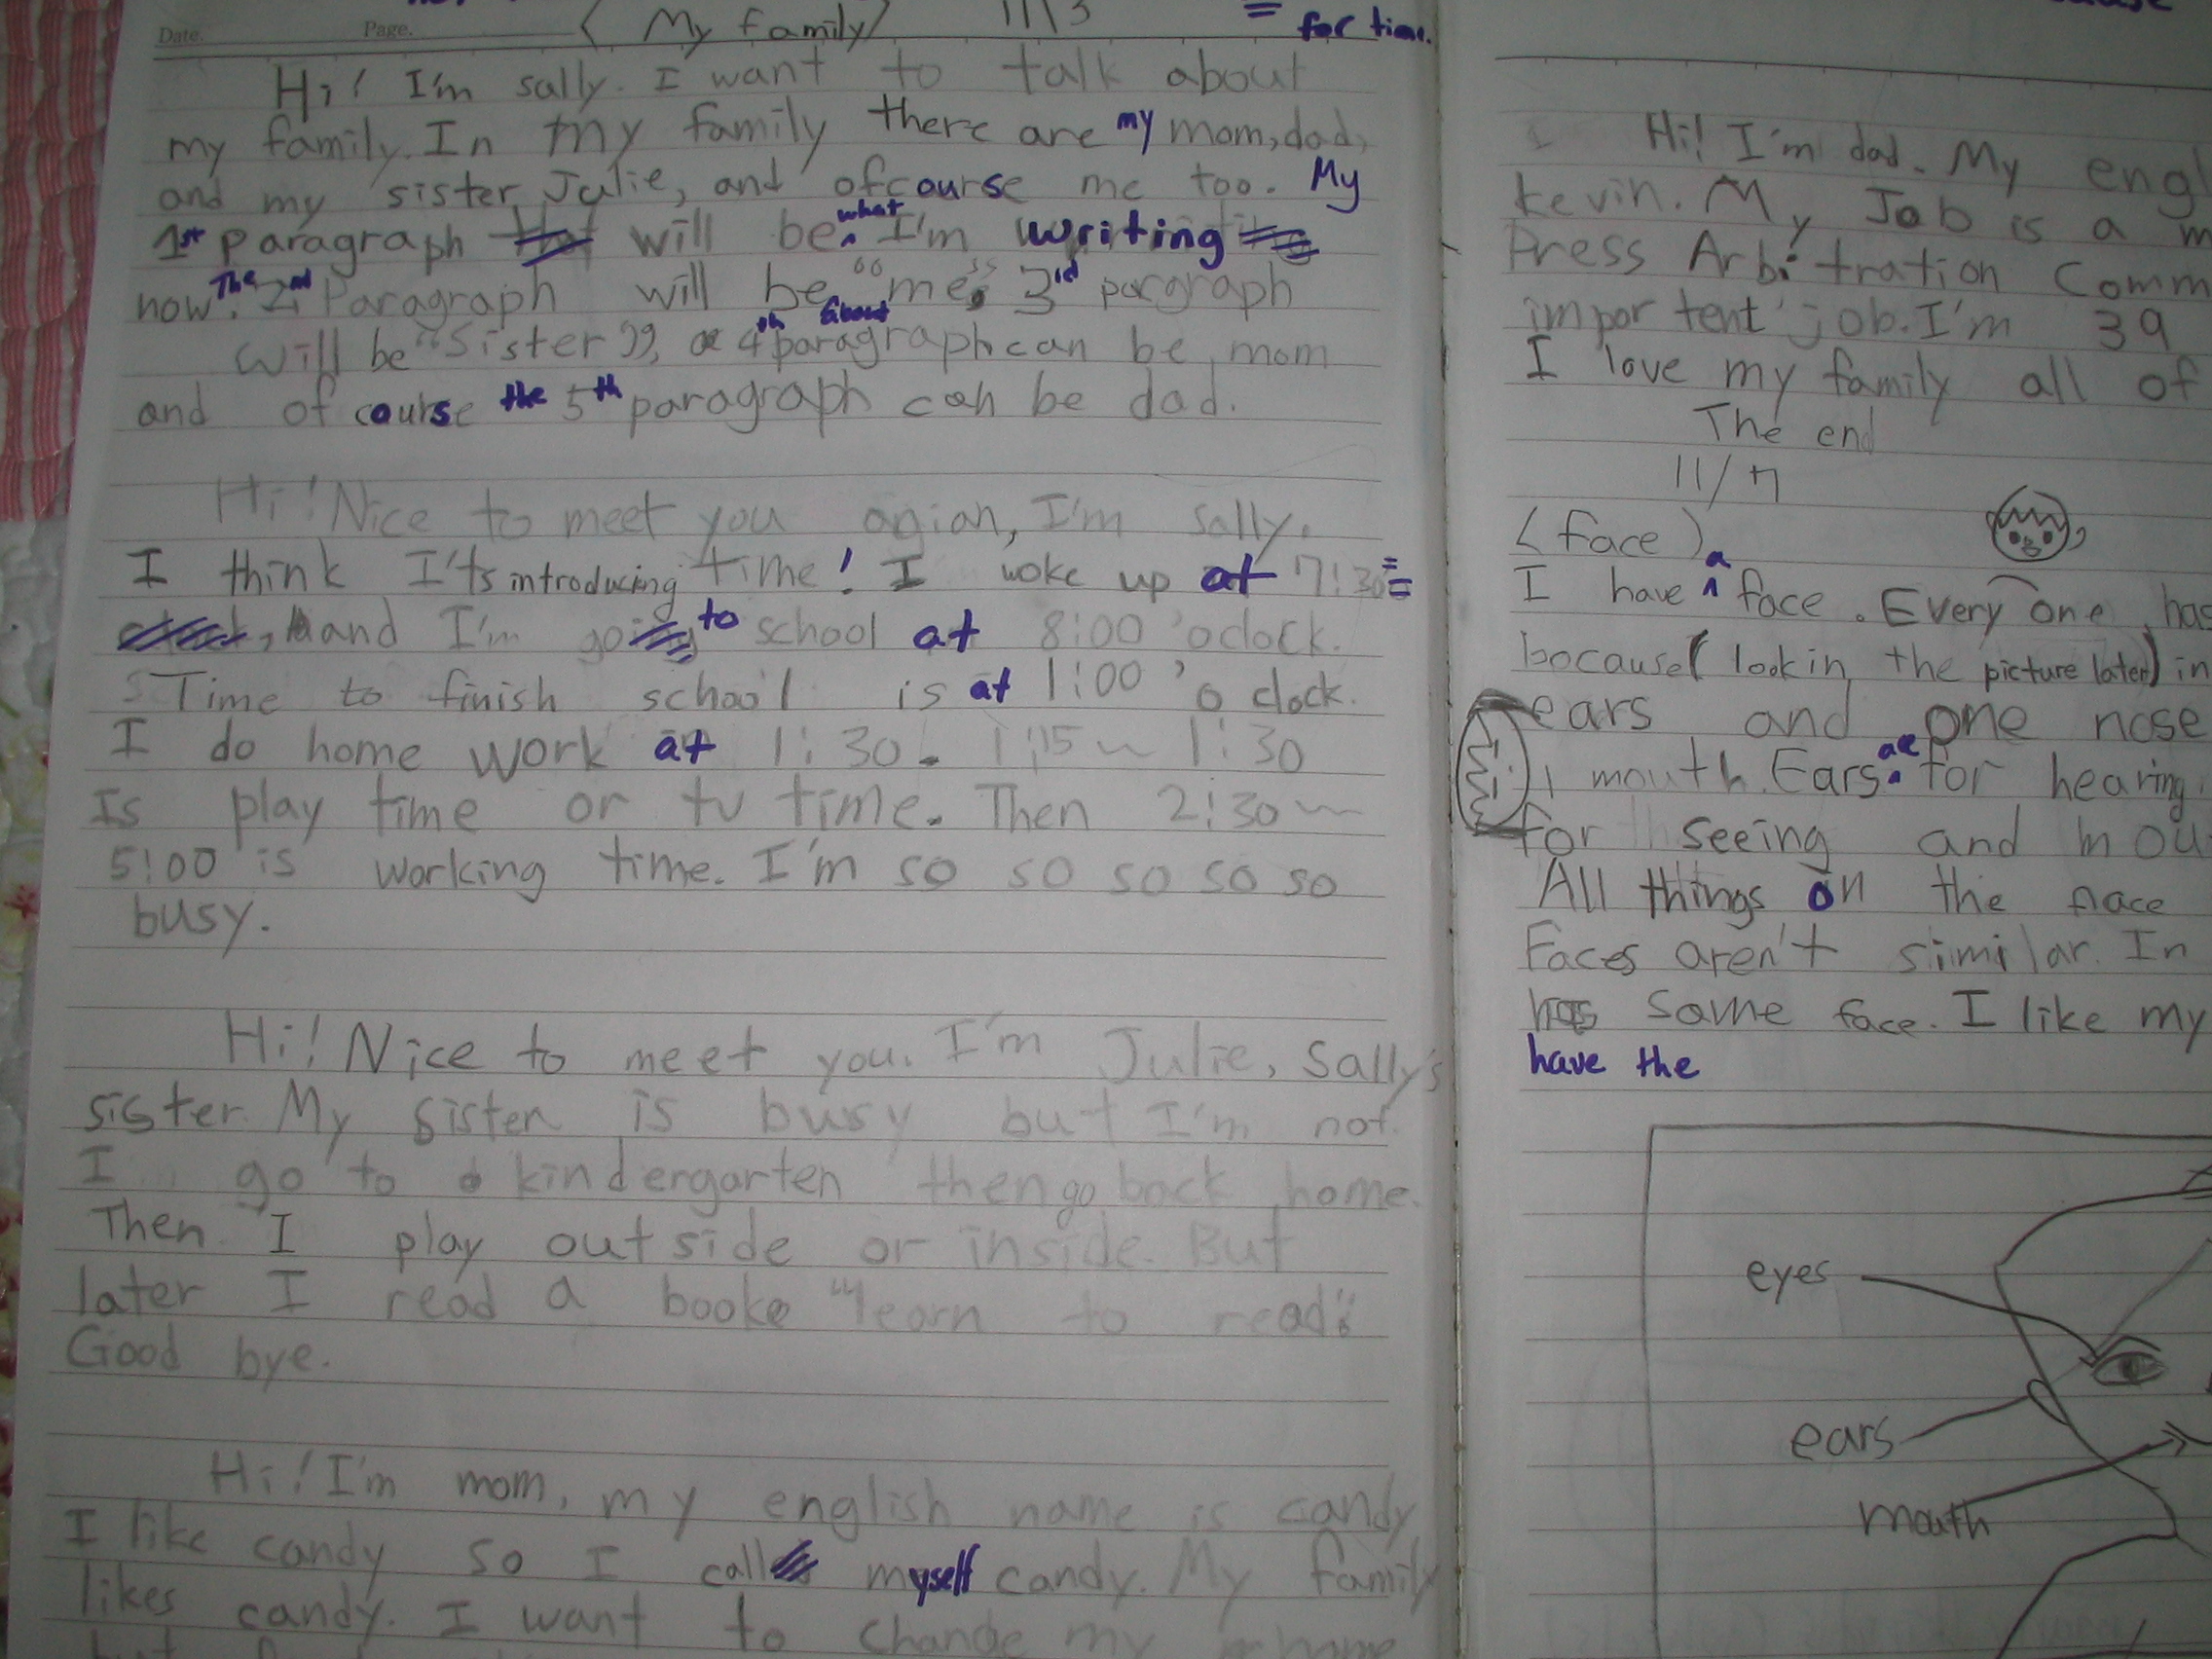 Date. Page. < My family> 11\3 = for time.
Hi! I'm sally. I want to talk about
my family. In my family there are my mom, dad,
and my sister Julie, and ofcourse me too. My
1st paragraph will be what I'm writing
now. The 2nd Paragraph will be "me", 3rd paragraph
will be "Sister", 4th paragraph can be about mom
and of course the 5th paragraph can be dad.
Hi! Nice to meet you agian, I'm sally.
I think I'ts introducing time! I woke up at 7:30
, and I'm go to school at 8:00 'oclock.
Time to finish school is at 1:00 'o clock.
I do home work at 1:30. 1:15 ~ 1:30
Is play time or tv time. Then 2:30 ~
5:00 is working time. I'm so so so so so
busy.
Hi! Nice to meet you. I'm Julie, Sally's
sister. My sister is busy but I'm not.
I go to kindergarten then go back home.
Then I play outside or inside. But
later I read a booke "learn to read".
Good bye.
Hi! I'm mom, my english name is candy
I like candy so I call myself candy. My family
likes candy. I want to change my
Hi! I'm dad. My
kevin. My Job is a
Press Arbitration
importent job. I'm 39
I love my family all of
The end
11/7
<face>
I have a face. Every one has
bocause (look in the picture later) in
ears and one nose
1 mouth. Ears are for hearing,
for seeing and
All things on the face
Faces aren't similar. In
same face. I like my
have the
eyes
ears
mouth